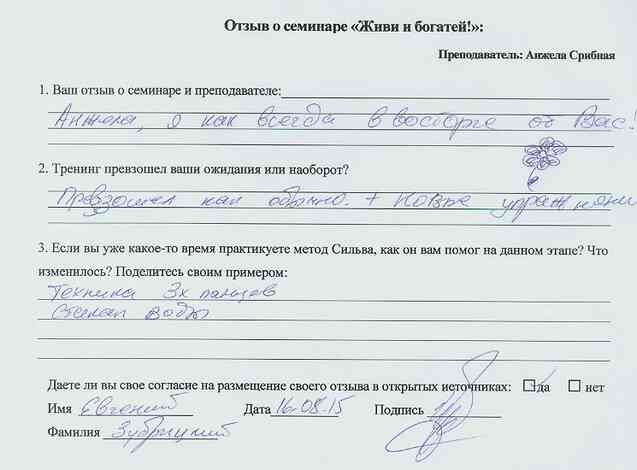 Отзыв о семинаре «Живи и богатей!»:
Преподаватель: Анжела Срибная
1. Ваш отзыв о семинаре и преподавателе:
Анжела, я как всегда в восторге от Вас!
2. Тренинг превзошел ваши ожидания или наоборот?
Превзошел как обычно. + Новые упражнени
3. Если вы уже какое-то время практикуете метод Сильва, как он вам помог на данном этапе? Что
изменилось? Поделитесь своим примером:
Техника 3х пальцев
Стакан воды
Даете ли вы свое согласие на размещение своего отзыва в открытых источниках: да нет
Имя Евгений Дата 16.08.15 Подпись
Фамилия Зубрицкий